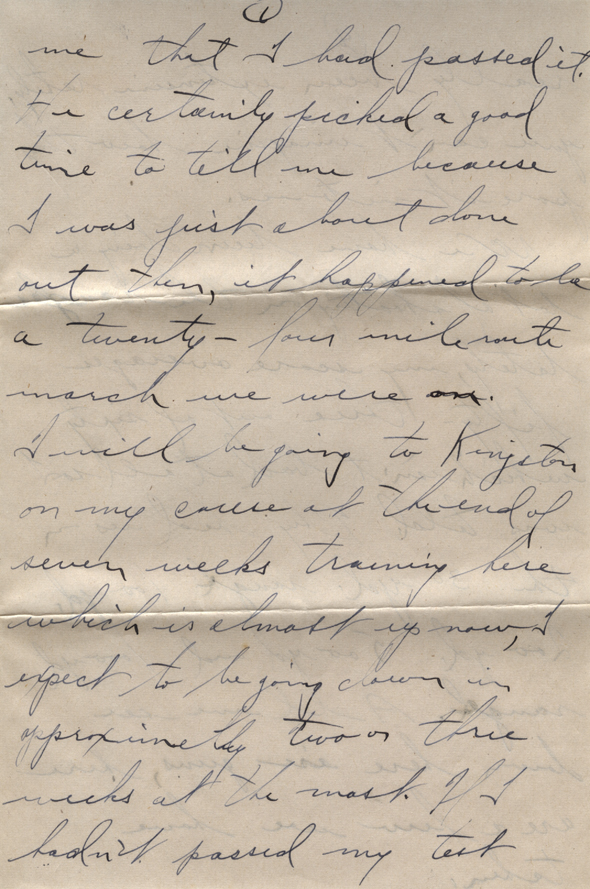 me that I had passed it.
He certainly picked a good
time to tell me because
I was just about done
out then, it happened to be
a twenty-four mile route
march we were on.
I will be going to Kingston
on my course at the end of
seven weeks training here
which is almost up now, I
expect to be going down in
approximately two or three
weeks at the most. If I
hadn't passed my test